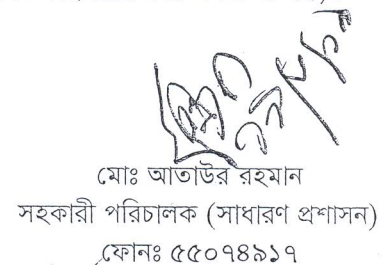 মোঃ আতাউর রহমান
সহকারী পরিচালক (সাধারণ প্রশাসন)
ফোনঃ ৫৫০৭৪৯১৭